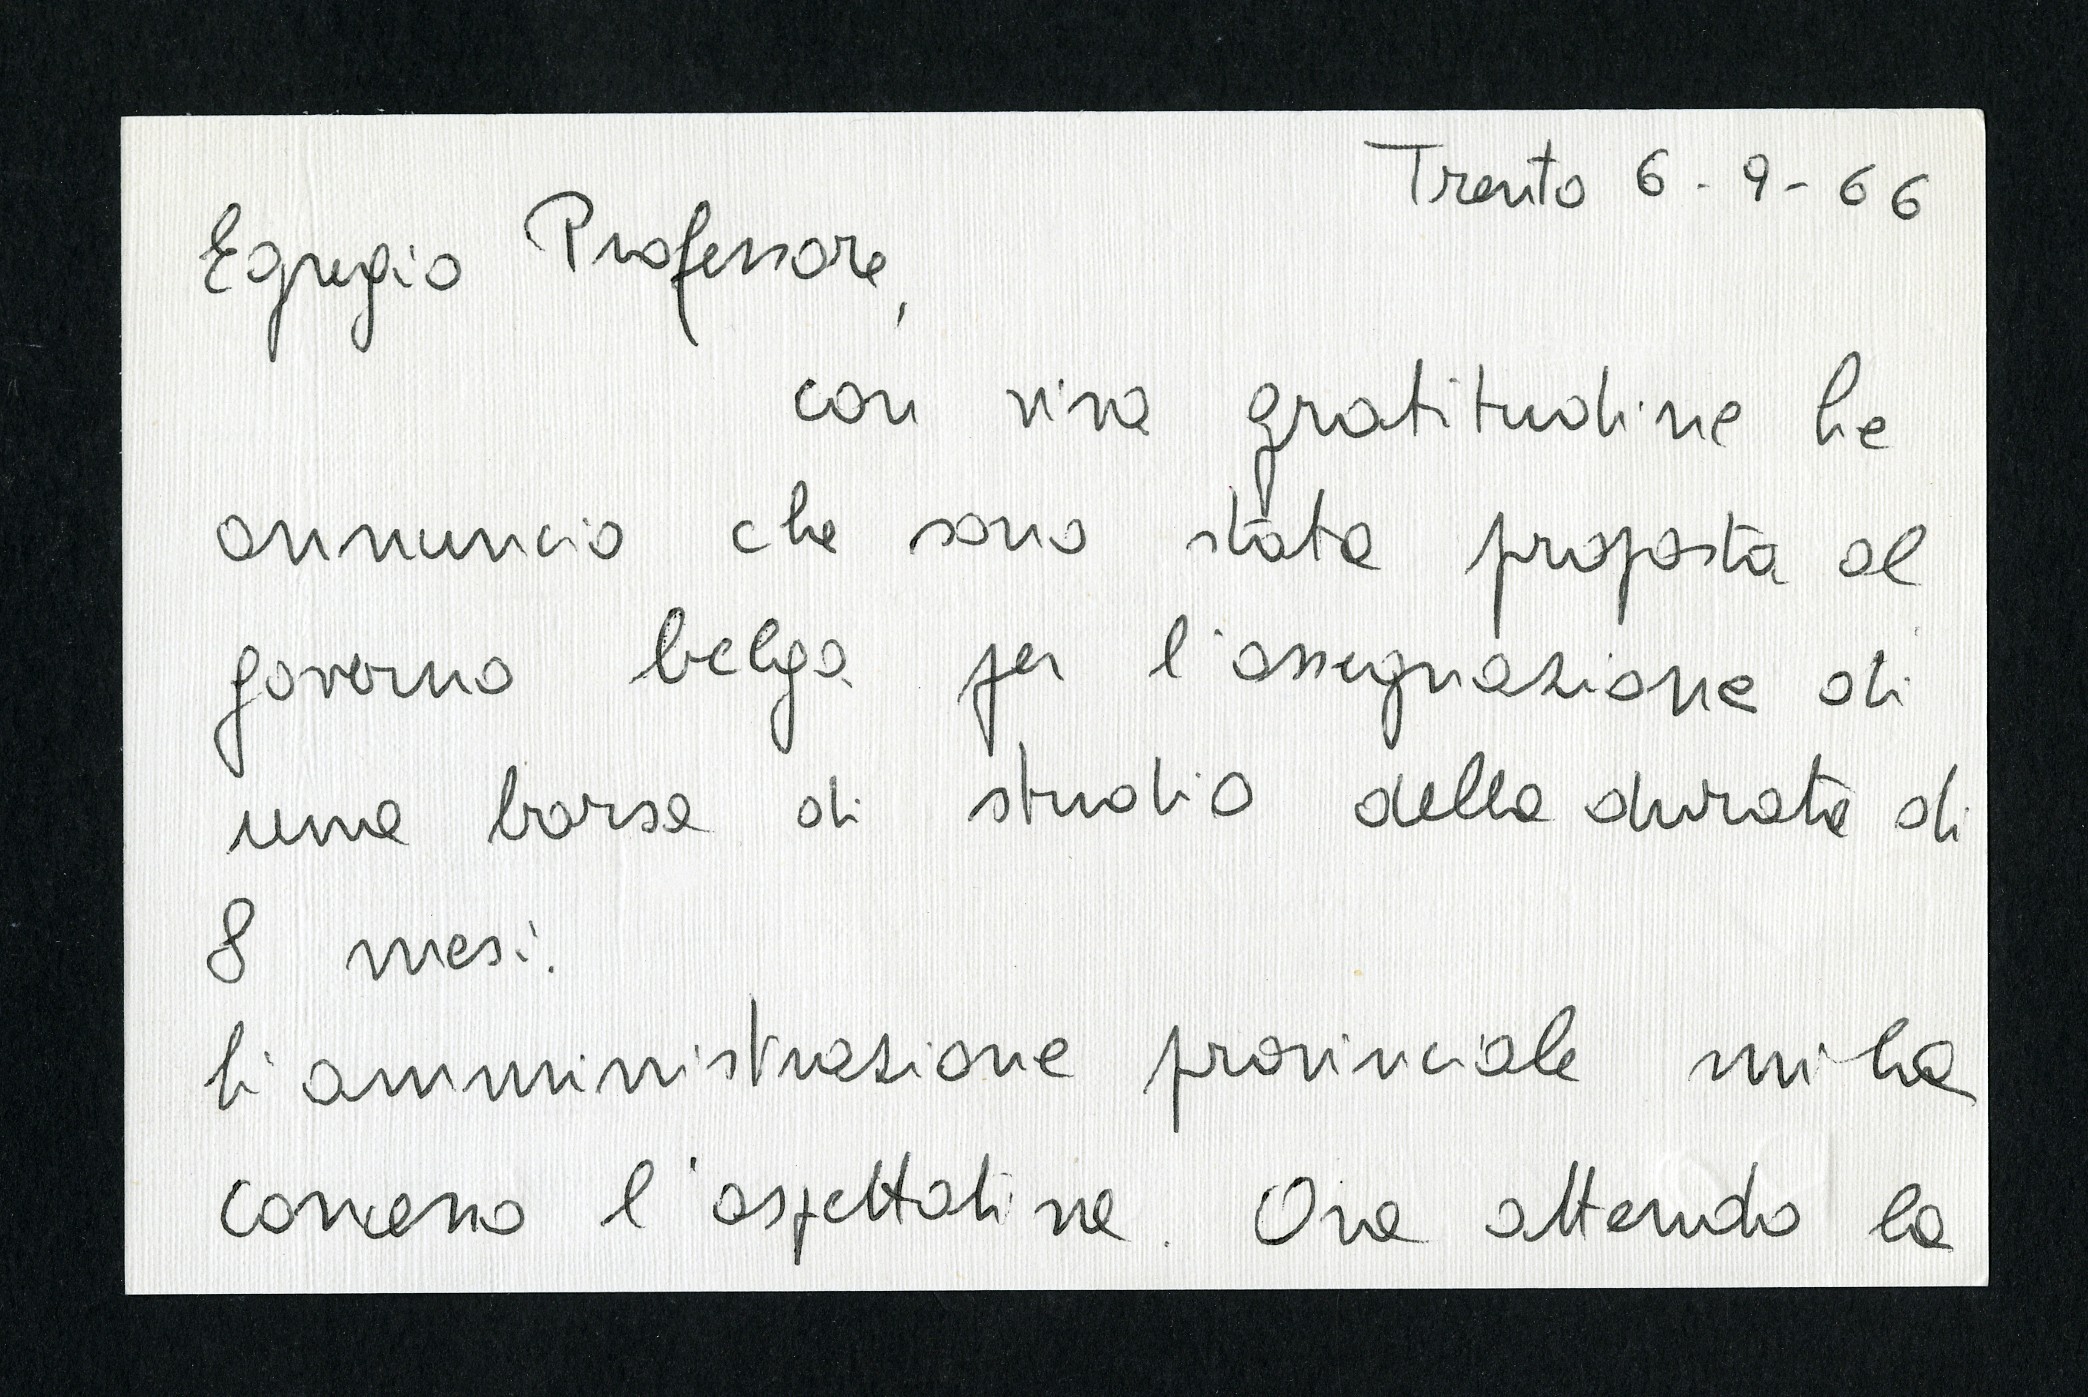 Trento 6-9-66
Egregio Professore,
con viva gratitudine Le
annuncio che sono stata proposta al
governo belga per l'assegnazione di
una borsa di studio della durata di
8 mesi.
L'amministrazione provinciale mi ha
concesso l'aspettativa. Ora attendo la